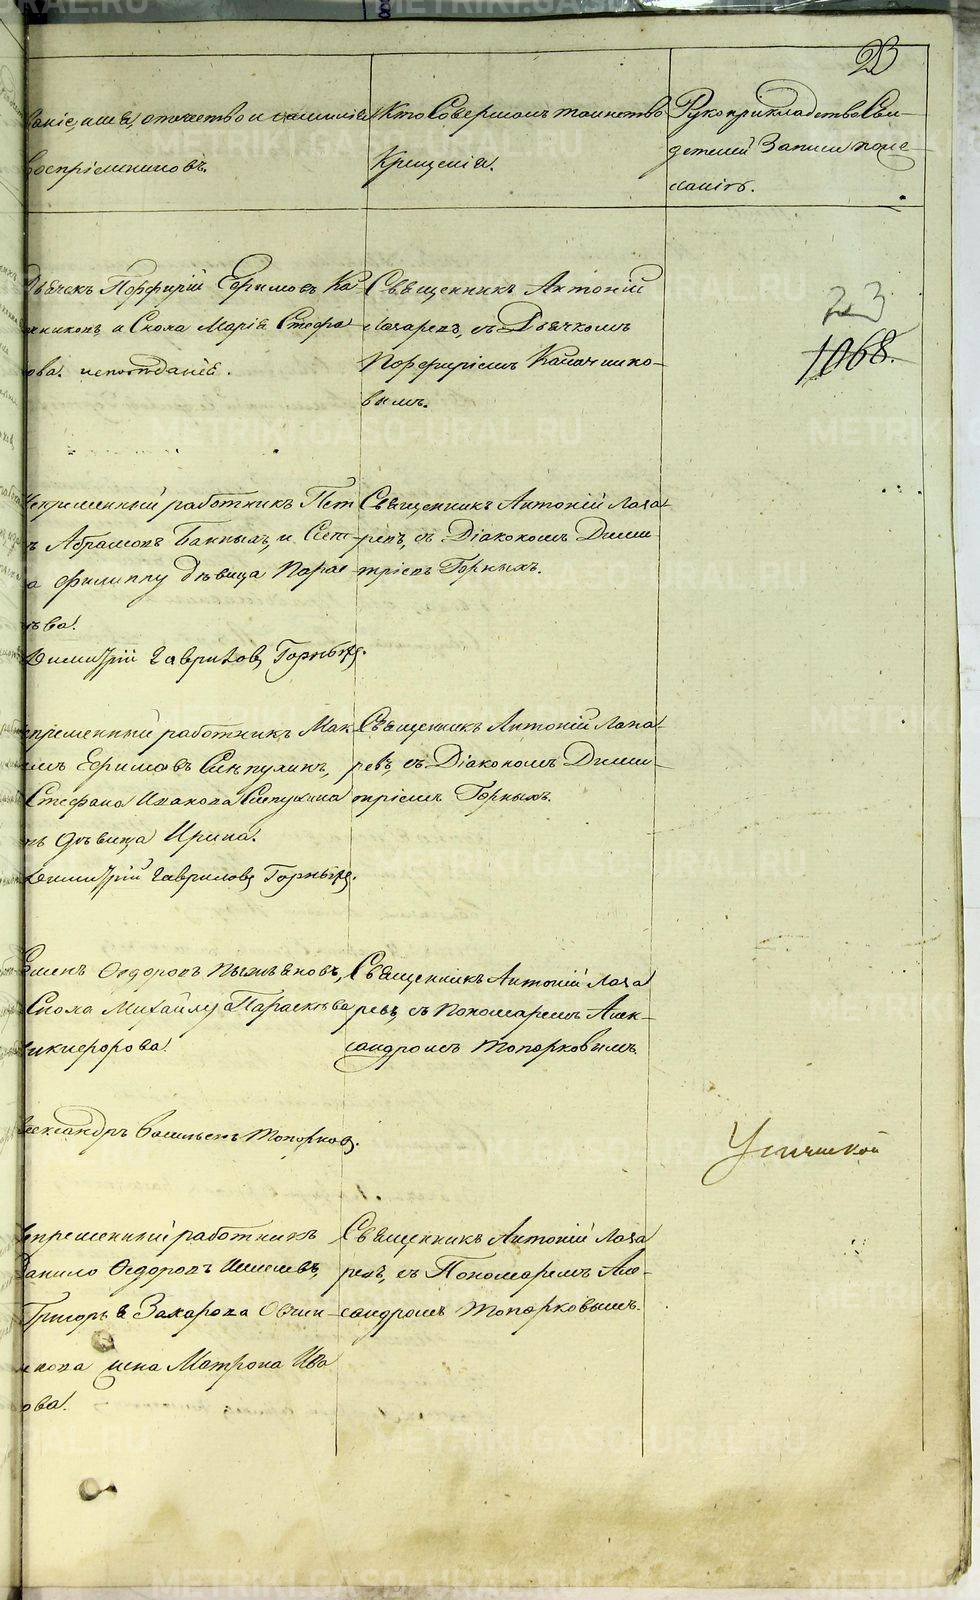 23
Званіе, имя, отечество и фамилія
Воспріемниковъ.
Кто Совершалъ таинство
Крещенія.
Рукоприкладство Сви-
детелей Записи поже-
ланію.
Дьячекъ Порфирій Ефимовъ Ка
никовъ и Снока Марія Стефа
нова.
Священникъ Антоній
Лазаревъ, съ Дьячкомъ
Порфиріемъ Калачнико-
вымъ.
23
1068.
Непременный работникъ Пет
ъ Абрамовъ Банныхъ, и Сест-
а Филиппу девица Парас
ьева.
Димитрій Гавриловъ Горныхъ.
Священникъ Антоній Лаза
ревъ, съ Діакономъ Дими
тріемъ Горныхъ.
епременный работникъ Мак
имъ Ефимовъ Слепухинъ,
Стефана Иванова Слепухина
ь девица Ирина.
Димитрій Гавриловъ Горныхъ.
Священникъ Антоній Лаза-
ревъ, съ Діакономъ Дими-
тріемъ Горныхъ.
Семенъ Федоровъ
Снока Михайлу Параскева
Никифорова.
Александръ Васильевъ Топорков.
Священникъ Антоній Лаза
ревъ, съ Пономаремъ Алек-
сандромъ Топорковымъ.
епременный работникъ
Данило Федоровъ
Григорья Захарова Овчин-
икова жена Матрона Ива
ова.
Священникъ Антоній Лаза
ревъ, съ Пономаремъ Але-
сандромъ Топорковымъ.
METRIKI.GASO-URAL.RU